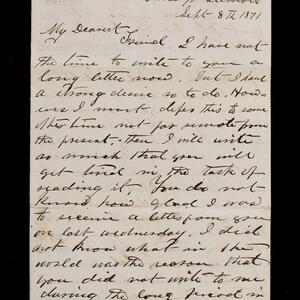 Sept 8th 1871
My Dearest
Friend I have not
the time to write to you a
long letter now. But I have
a strong desire so to do. How-
ever I must defer this to some
other time not far remote from
the present. then I will write
so much that you will
get tired in the task of
reading it. You do not
know how glad I was
to receive a letter from you
on last wednesday. I did
not know what in the
world was the reason that
you did not write to me
during the long period in